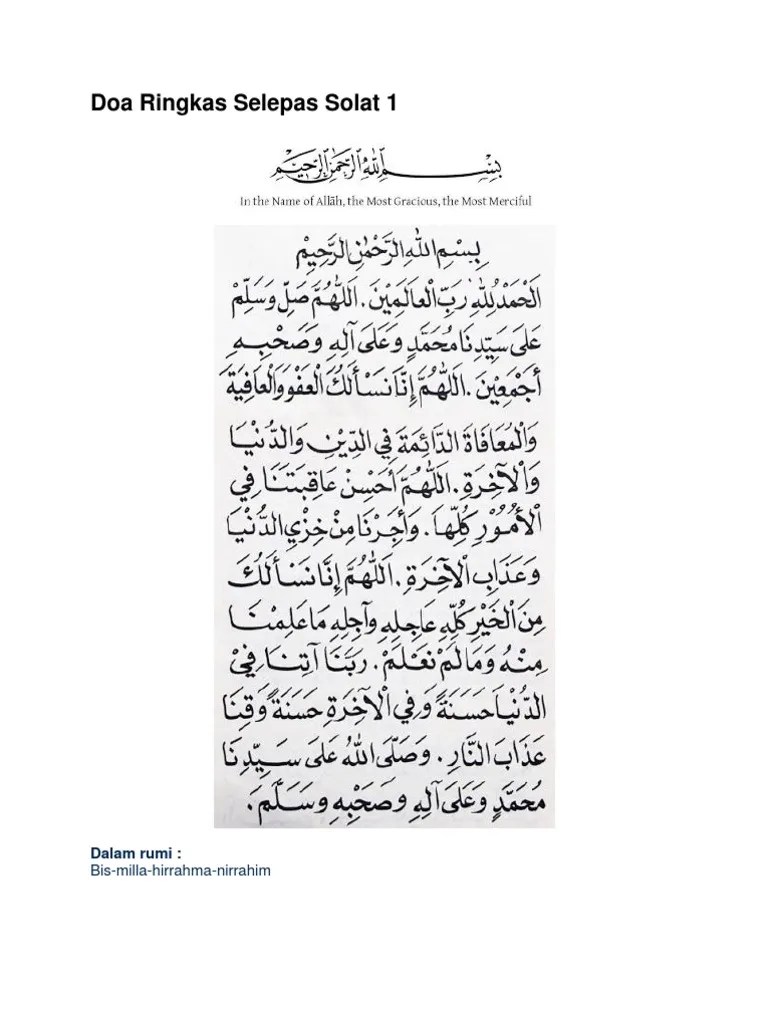 Doa Ringkas Selepas Solat 1
بِسْمِ اللهِ الرَّحْمٰنِ الرَّحِيْمِ
In the Name of Allāh, the Most Gracious, the Most Merciful
بِسْمِ اللهِ الرَّحْمٰنِ الرَّحِيْمِ
اَلْحَمْدُ لِلّٰهِ رَبِّ الْعَالَمِيْنَ. اَللّٰهُمَّ صَلِّ وَسَلِّمْ
عَلَى سَيِّدِنَا مُحَمَّدٍ وَعَلَى آلِهِ وَصَحْبِهِ
أَجْمَعِيْنَ. اَللّٰهُمَّ إِنَّا نَسْأَلُكَ الْعَفْوَ وَالْعَافِيَةَ
وَالْمُعَافَاةَ الدَّائِمَةَ فِي الدِّيْنِ وَالدُّنْيَا
وَالْآخِرَةِ. اَللّٰهُمَّ أَحْسِنْ عَاقِبَتَنَا فِي
الْأُمُوْرِ كُلِّهَا. وَأَجِرْنَا مِنْ خِزْيِ الدُّنْيَا
وَعَذَابِ الْآخِرَةِ. اَللّٰهُمَّ إِنَّا نَسْأَلُكَ
مِنَ الْخَيْرِ كُلِّهِ عَاجِلِهِ وَآجِلِهِ مَا عَلِمْنَا
مِنْهُ وَمَا لَمْ نَعْلَمْ. رَبَّنَا آتِنَا فِيْ
الدُّنْيَا حَسَنَةً وَفِي الْآخِرَةِ حَسَنَةً وَقِنَا
عَذَابَ النَّارِ. وَصَلَّى اللهُ عَلَى سَيِّدِنَا
مُحَمَّدٍ وَعَلَى آلِهِ وَصَحْبِهِ وَسَلَّمَ.
Dalam rumi :
Bis-milla-hirrahma-nirrahim